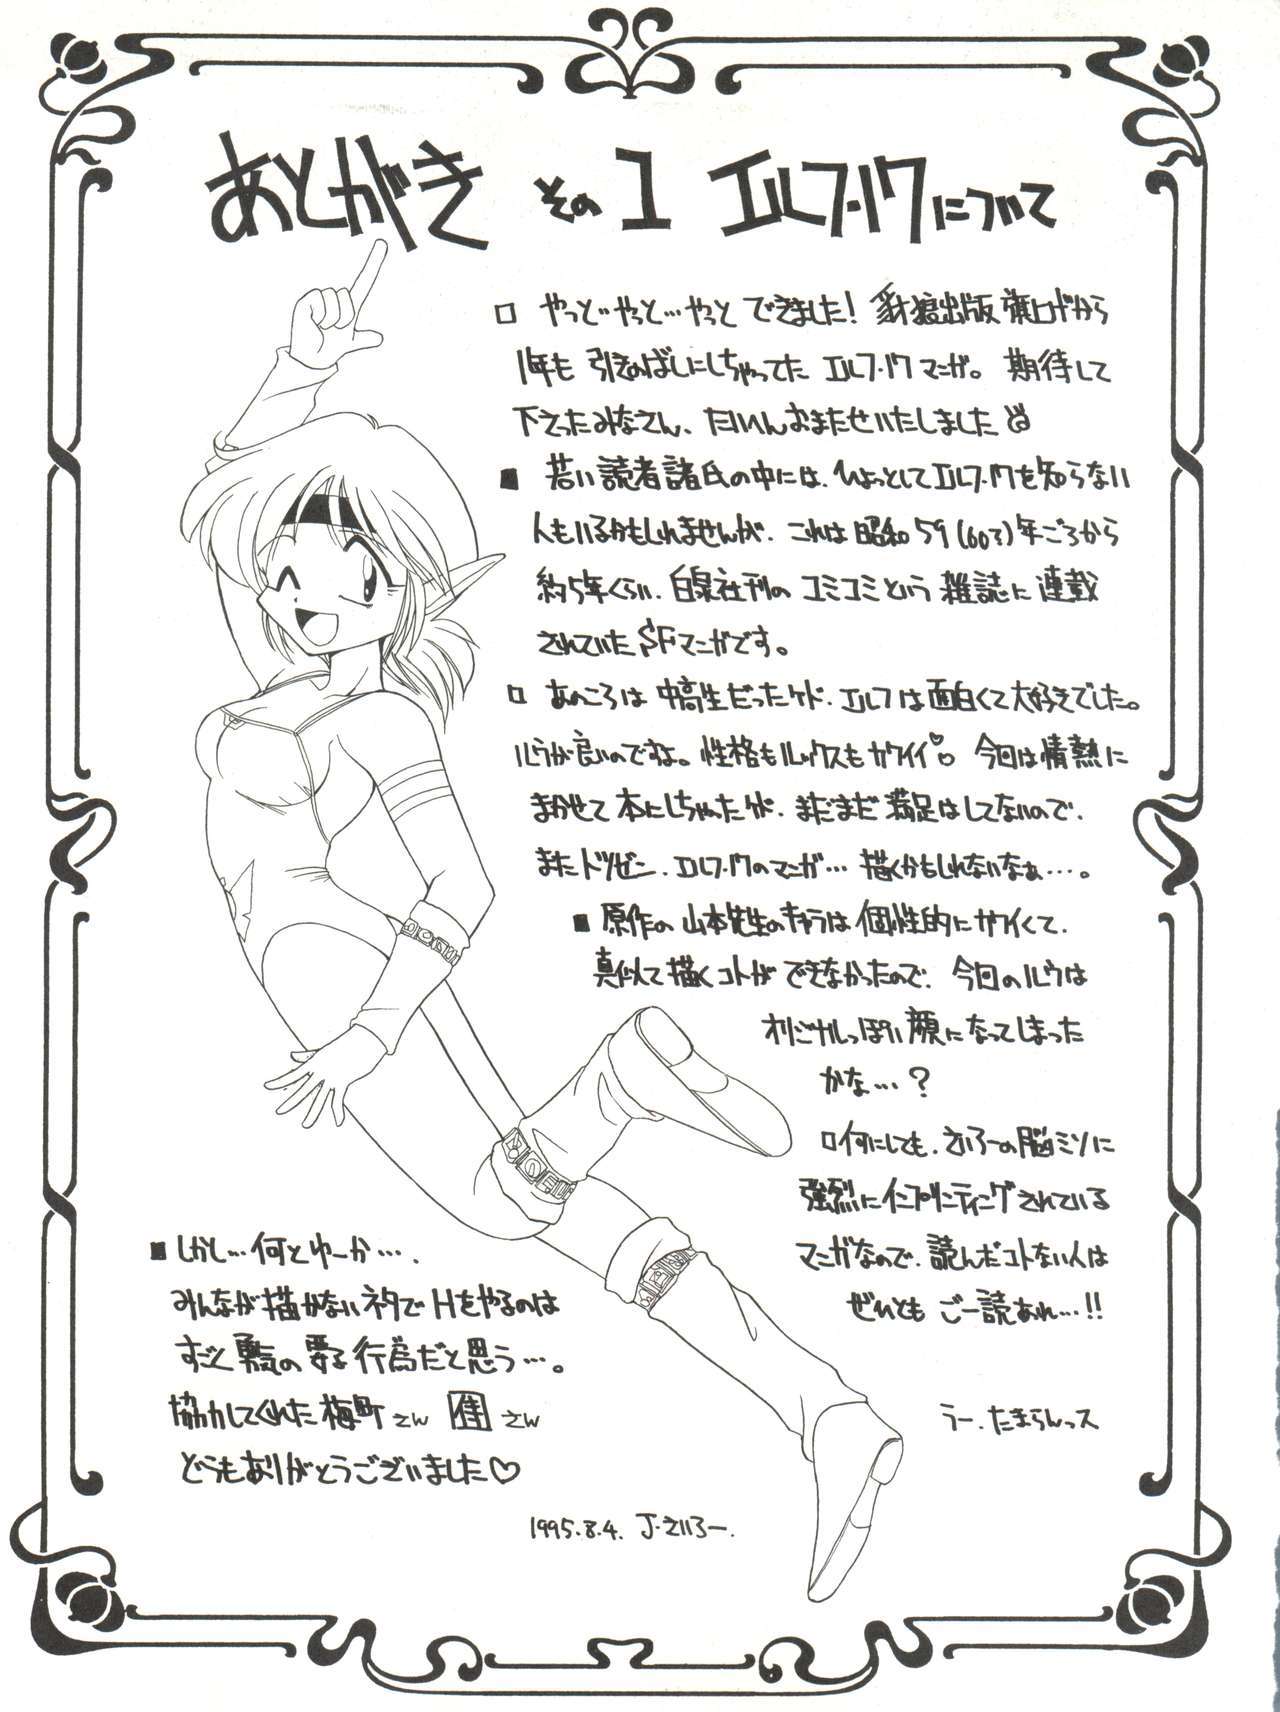 あとがき その1 エルフ・17について
□ やっと…やっと…やっと できました! 豺狼出版 旗上げから
1年も 引きのばしにしちゃってた エルフ・17マンガ。 期待して
下さったみなさん、たいへんおまたせいたしました
■ 若い読者諸氏の中には、ひょっとしてエルフ・17を知らない
人もいるかもしれませんが、これは昭和59(60?)年ごろから
約5年くらい、白泉社刊の コミコミという 雑誌に 連載
されていたSFマンガです。
□ あのころは 中高生だったケド、エルフは面白くて大好きでした。
ルウが良いのですよ。性格もルックスもカワイイ♡ 今回は情熱に
まかせて本にしちゃったケド、まだまだ 満足はしてないので、
またトツゼン、エルフ・17のマンガ… 描くかもしれないなぁ…。
■ 原作の 山本先生のキャラは 個性的にカワイくて、
真似て描くコトが できなかったので、今回のルウは
オリジナルっぽい顔になってしまった
かな…?
□何にしても、さいろーの脳ミソに
強烈にインプリンティングされている
マンガなので、読んだコトない人は
ぜひとも ご一読あれ…!!
うー、たまらんっス
■しかし…何とゆーか…、
みんなが描かないネタでHをやるのは
すごく勇気の要る行為だと思う…。
協力してくれた 梅町さん 佳さん
どうもありがとうございました♡
1995.8.4. J・さいろー.